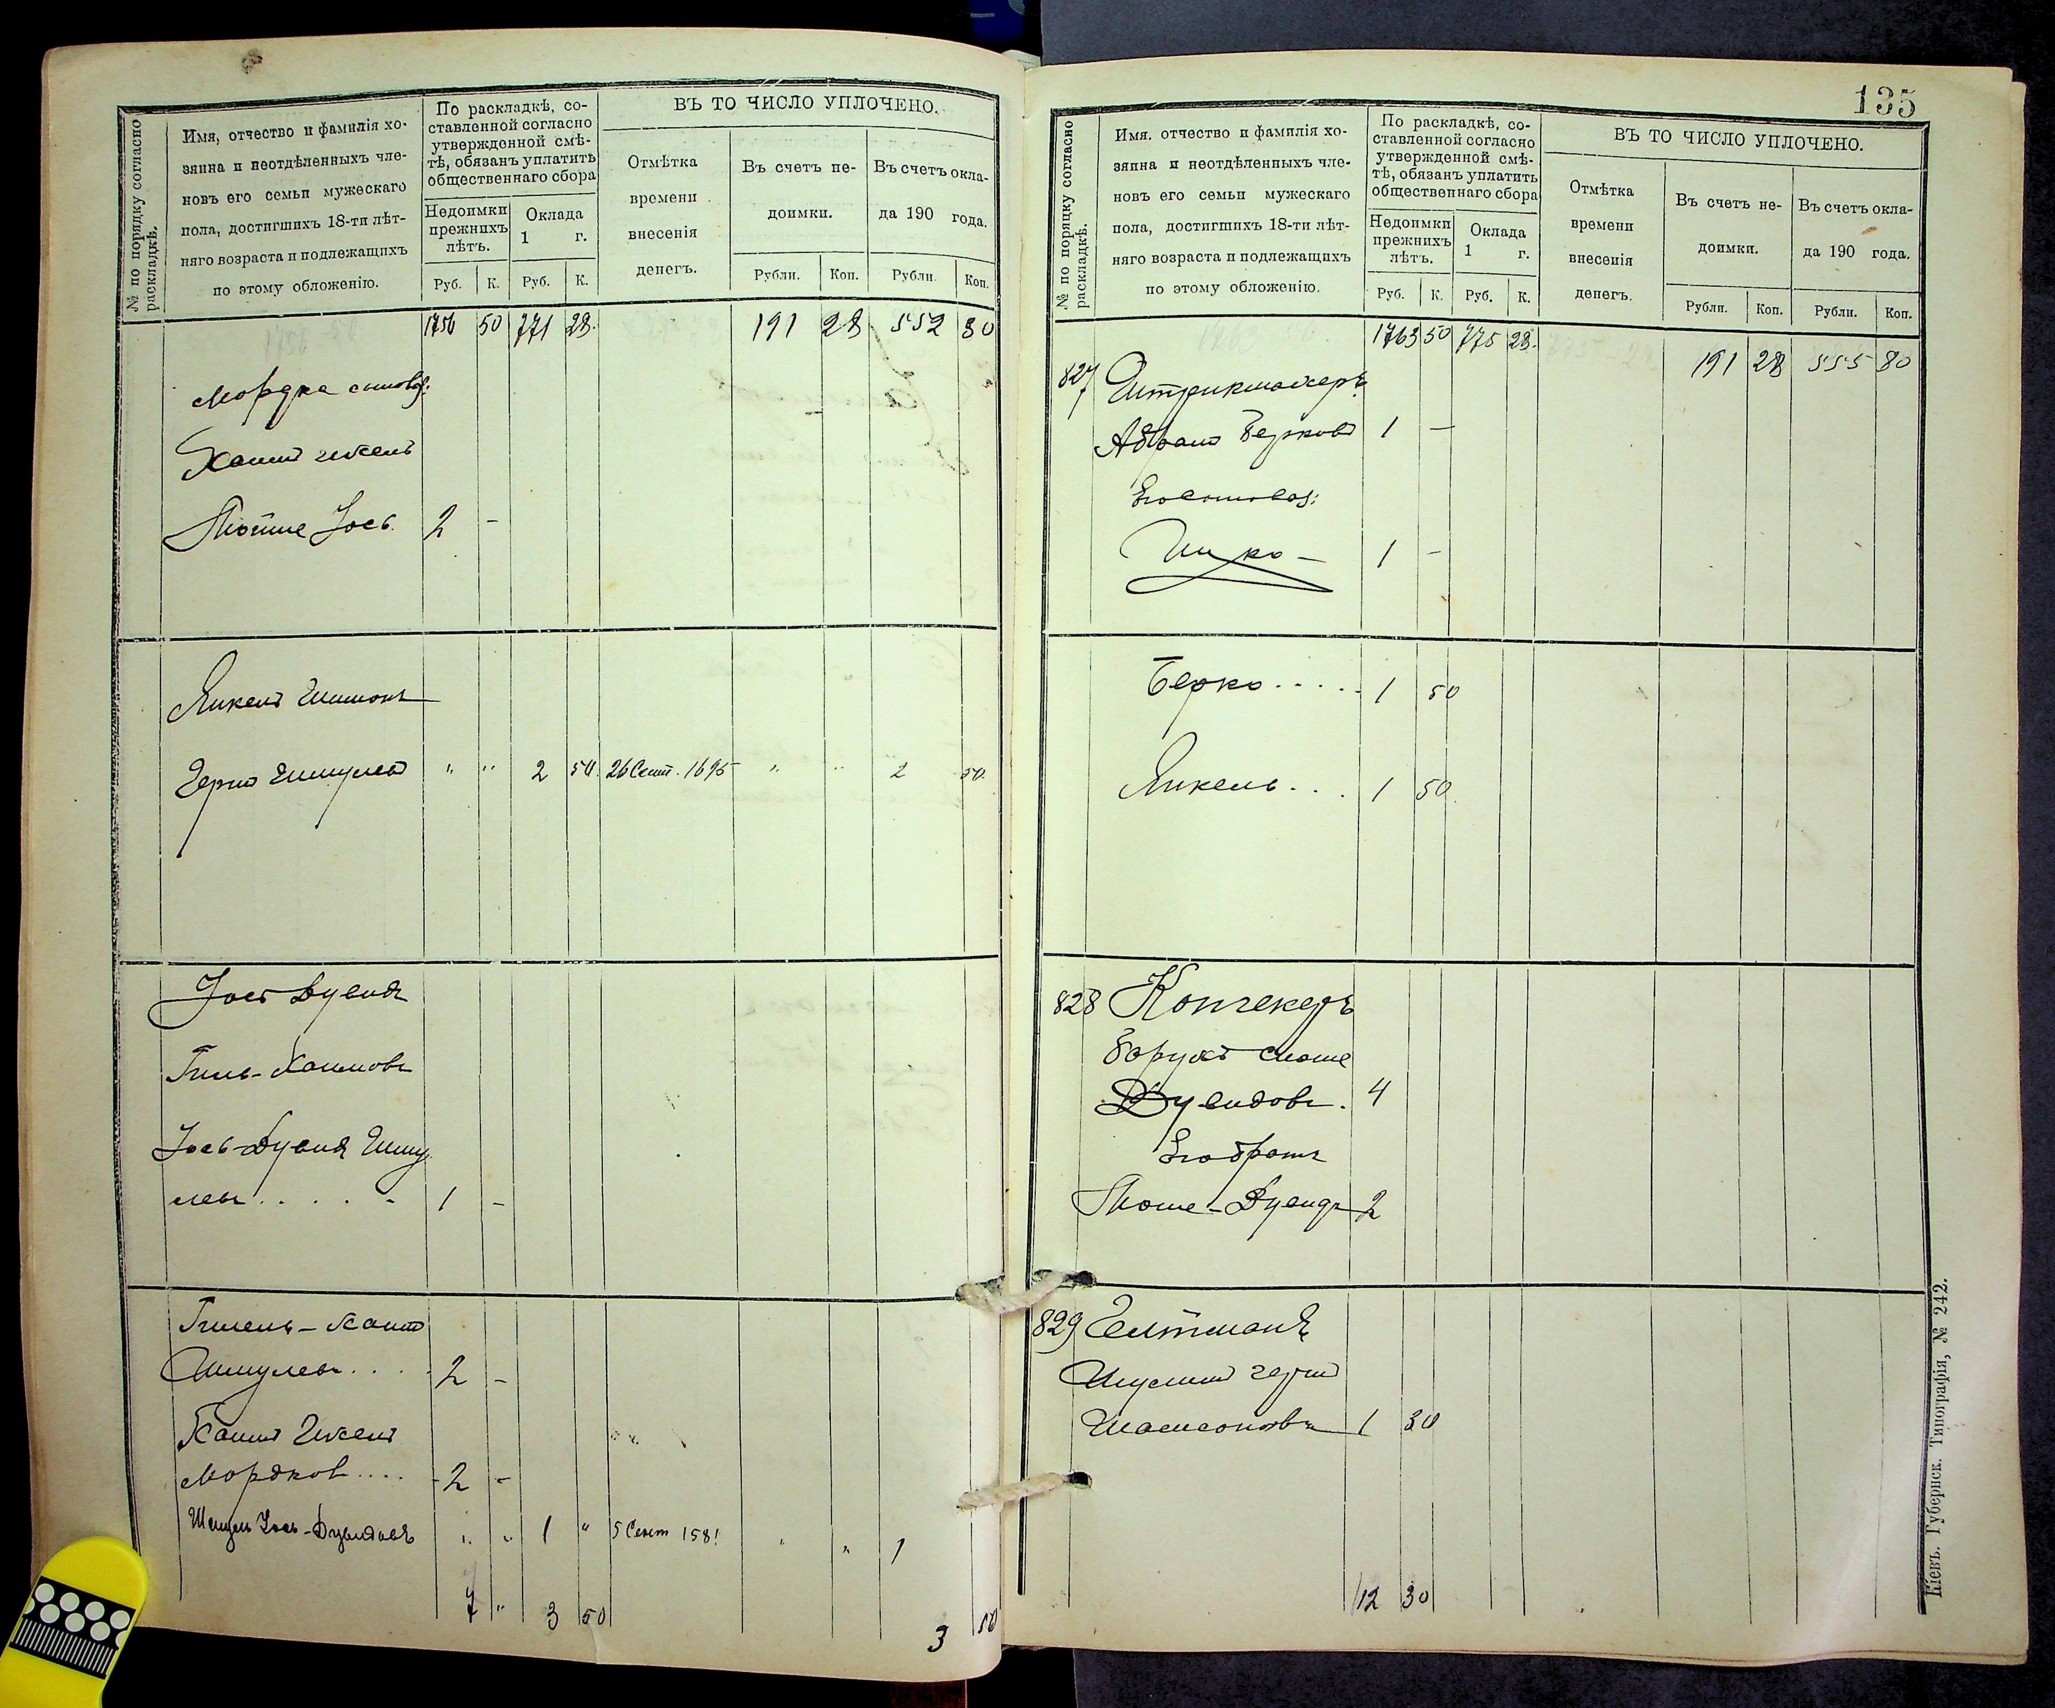 № по порядку согласно раскладкѣ.
Имя, отчество и фамилія хо-
зяина и неотдѣленныхъ чле-
новъ его семьи мужескаго
пола, достигшихъ 18-ти лѣт-
няго возраста и подлежащихъ
по этому обложенію.
По раскладкѣ, со-
ставленной согласно
утвержденной смѣ-
тѣ, обязанъ уплатить
общественнаго сбора
Недоимки
прежнихъ
лѣтъ.
Оклада
1 г.
Руб. К. Руб. К.
ВЪ ТО ЧИСЛО УПЛОЧЕНО.
Отмѣтка
времени
внесенія
денегъ.
Въ счетъ не-
доимки.
Въ счетъ окла-
да 190 года.
Рубли. Коп. Рубли. Коп.
1756 50 771 28. 191 28 552 30
Мордка сыновья:
Хаимъ
Мойше Іось 2 -
Янкель Шимонъ
Герш Шмулев " " 2 50 26 Сент. 1695 " " 2 50
Іось Дувидъ
Гиль-Хаимовъ
Іось-Дувид Шму
лев . . . . - 1 -
Хаим
Шмулев . . . . 2 -
Хаим
Мордков .... 2 -
Шмуль Іось-Дувидовъ " " 1 " 5 Сент 1581 " " 1
7 " 3 50 3 50
135
№ по порядку согласно раскладкѣ.
Имя. отчество и фамилія хо-
зяина и неотдѣленныхъ чле-
новъ его семьи мужескаго
пола, достигшихъ 18-ти лѣт-
няго возраста и подлежащихъ
по этому обложенію.
По раскладкѣ, со-
ставленной согласно
утвержденной смѣ-
тѣ, обязанъ уплатить
общественнаго сбора
Недоимки
прежнихъ
лѣтъ.
Оклада
1 г.
Руб. К. Руб. К.
ВЪ ТО ЧИСЛО УПЛОЧЕНО.
Отмѣтка
времени
внесенія
денегъ.
Въ счетъ не-
доимки.
Въ счетъ окла-
да 190 года.
Рубли. Коп. Рубли. Коп.
1763 50 775 28. 191 28 555 80
827 Штрикмахеръ
Абрам Берков 1 -
Его сыновья:
Ицко - 1 -
Берко . . . . . 1 50
Янкель . . . 1 50
828 Копчекеръ
Борух
Дувидовъ. 4
Его братъ
Мошe-Дувидъ 2
829 Гелтманъ
герш
Шамсоновъ 1 30
12 30
Кіевъ. Губернск. Типографія, № 242.